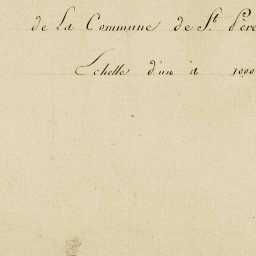 de La Commune de S.t Père
Echelle d'un à 1000